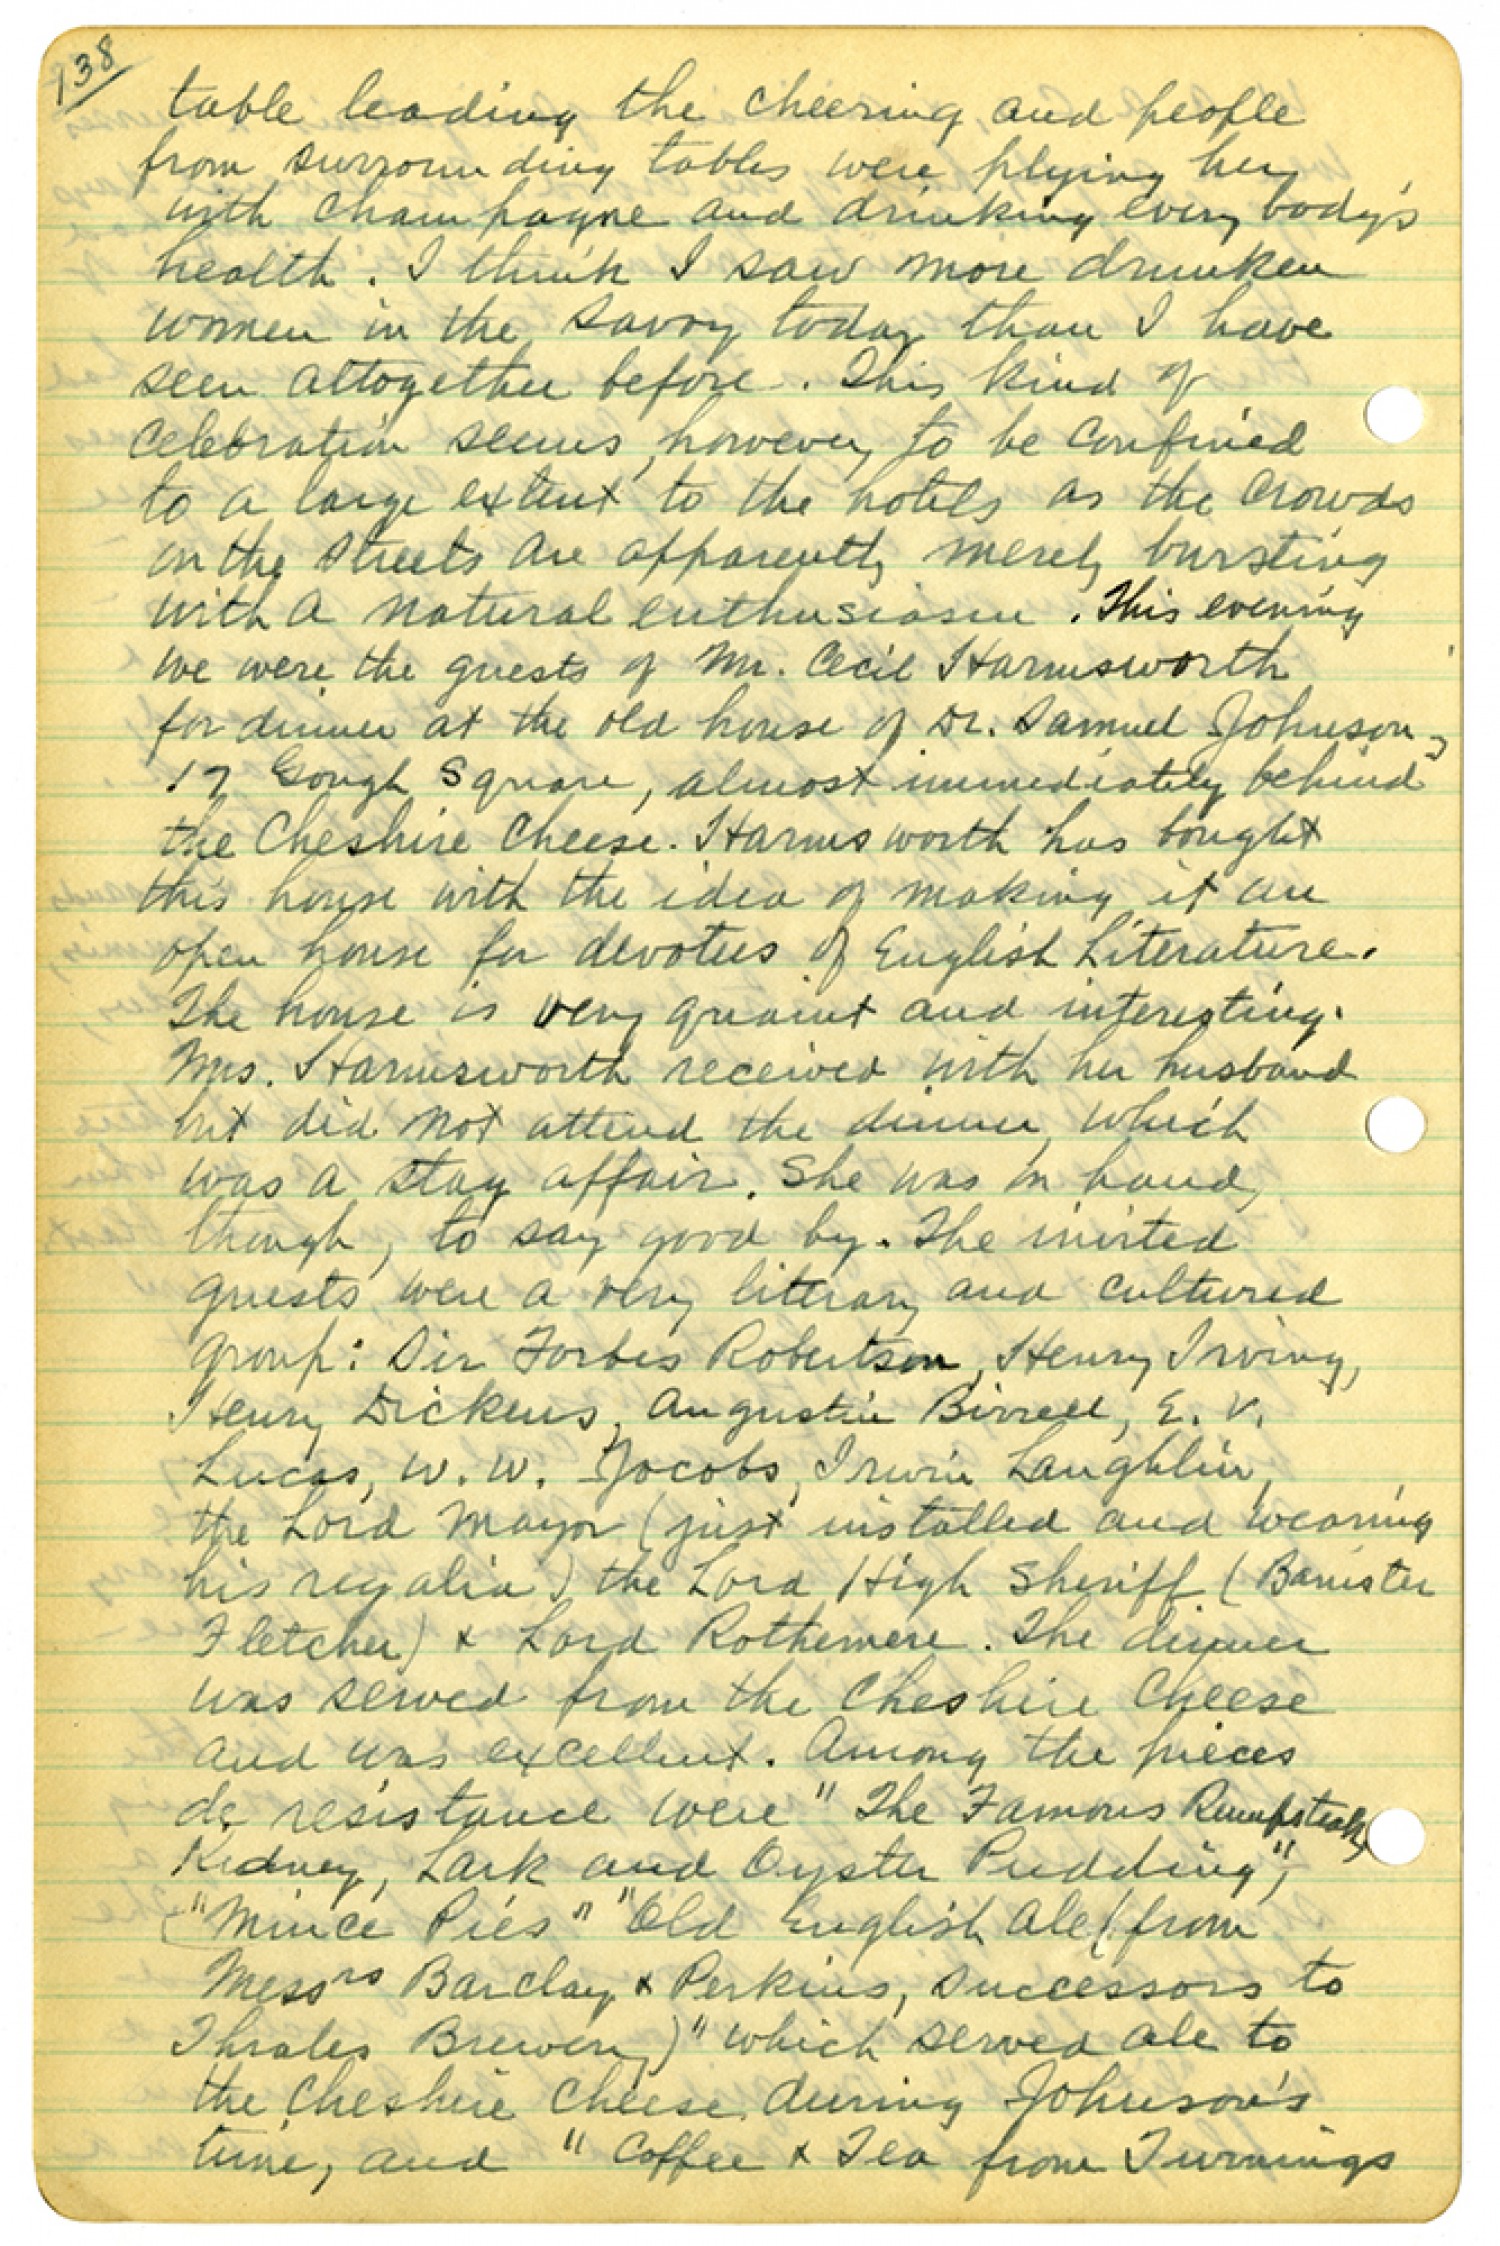 138
table leading the cheering and people
from surrounding tables were plying her
with champagne and drinking every body's
health. I think I saw more drunken
women in the Savoy today than I have
seen altogether before. This kind of
celebration seems, however, to be confined
to a large extent to the hotels as the crowds
on the streets are apparently merely bursting
with a natural enthusiasm. This evening
we were the guests of Mr. Cecil Harmsworth
for dinner at the old house of Dr. Samuel Johnson,
17 Gough Square, almost immediately behind
the Cheshire Cheese. Harmsworth has bought
this house with the idea of making it an
open house for devotees of English Literature.
The house is very quaint and interesting.
Mrs. Harmsworth received with her husband
but did not attend the dinner, which
was a stag affair. She was on hand,
though, to say good by. The invited
guests were a very literary and cultured
group: Sir Forbes Robertson, Henry Irving,
Henry Dickens, Augustin Birrell, E. V.
Lucas, W. W. Jacobs, Irwin Laughlin,
the Lord Mayor (just installed and wearing
his regalia) the Lord High Sheriff (Banister
Fletcher) & Lord Rothemere. The dinner
was served from the Cheshire Cheese
and was excellent. Among the pieces
de resistance were "The Famous Rumpsteak,
Kidney, Lark and Oyster Pudding",
"Mince Pies" "Old English Ale (from
Messrs Barclay & Perkins, successors to
Thrales Brewery)" which served ale to
the Cheshire Cheese during Johnson's
time, and "Coffee & Tea from Twinings